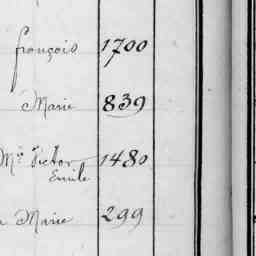 françois 1700
Marie 839
Mie Victor 1480
Emile
Marie 299